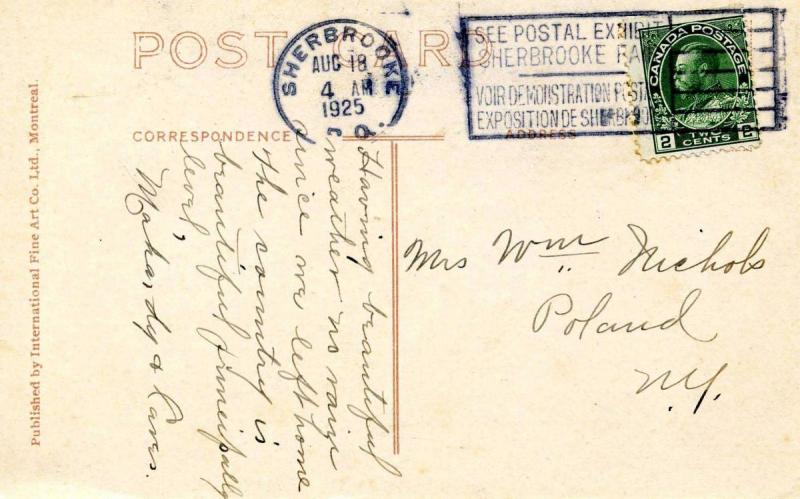 POST CARD
SHERBROOKE
AUG 18
4 AM
1925
P.Q.
SEE POSTAL EXHIBIT
SHERBROOKE FA
VOIR DEMONSTRATION POST
EXPOSITION DE SHERBRO
CANADA POSTAGE
2 TWO 2
CENTS
CORRESPONDENCE
ADDRESS
Having beautiful
weather no rain
since we left home
The country is
beautiful principally
level,
Mrs Wm Nichols
Poland
N.Y.
Published by International Fine Art Co. Ltd., Montreal